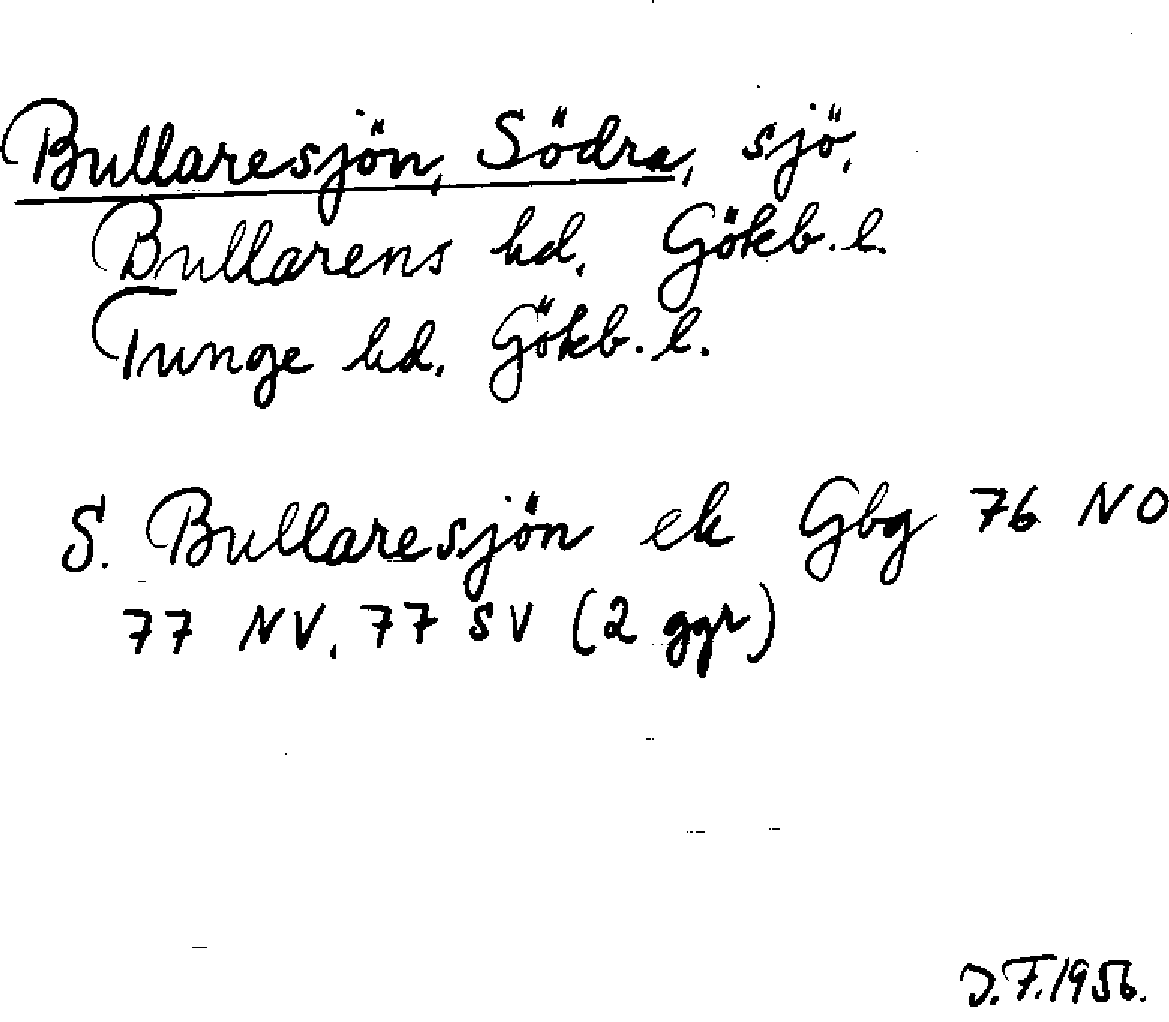 Bullaresjön, Södra, sjö,
Bullarens hd, Gökb. l.
Tunge hd, Gökb. l.
S. Bullaresjön ek Gbg 76 NO
77 NV, 77 SV (2 ggr)
J.F. 1956.